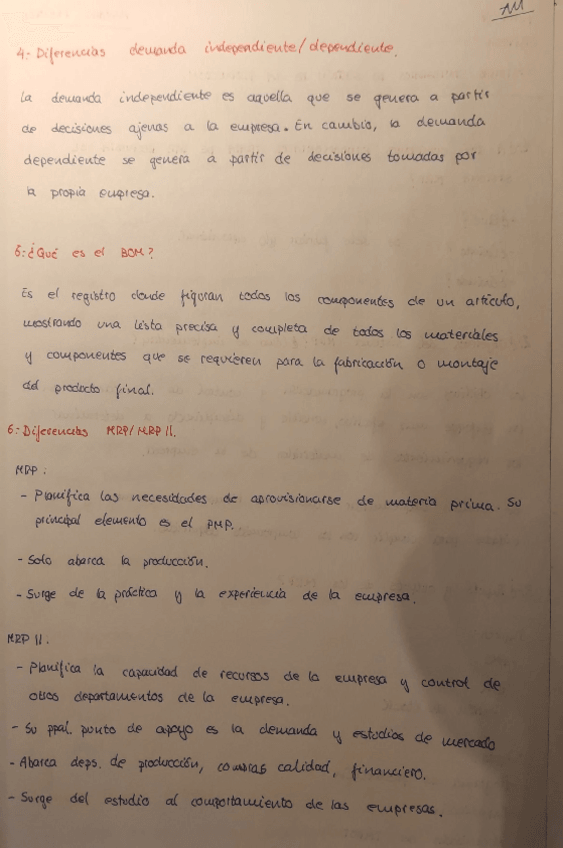 4: Diferencias demanda independiente/dependiente.
La demanda independiente es aquella que se genera a partir
de decisiones ajenas a la empresa. En cambio, la demanda
dependiente se genera a partir de decisiones tomadas por
la propia empresa.
5: ¿Qué es el BOM?
Es el registro donde figuran todos los componentes de un artículo,
mostrando una lista precisa y completa de todos los materiales
y componentes que se requieren para la fabricación o montaje
del producto final.
6: Diferencias MRP/MRP II.
MRP:
- Planifica las necesidades de aprovisionarse de materia prima. Su
principal elemento es el PMP.
- Solo abarca la producción.
- Surge de la práctica y la experiencia de la empresa.
MRP II.
- Planifica la capacidad de recursos de la empresa y control de
otros departamentos de la empresa.
- Su ppal. punto de apoyo es la demanda y estudios de mercado
- Abarca deps. de producción, compras calidad, financiero.
- Surge del estudio al comportamiento de las empresas.